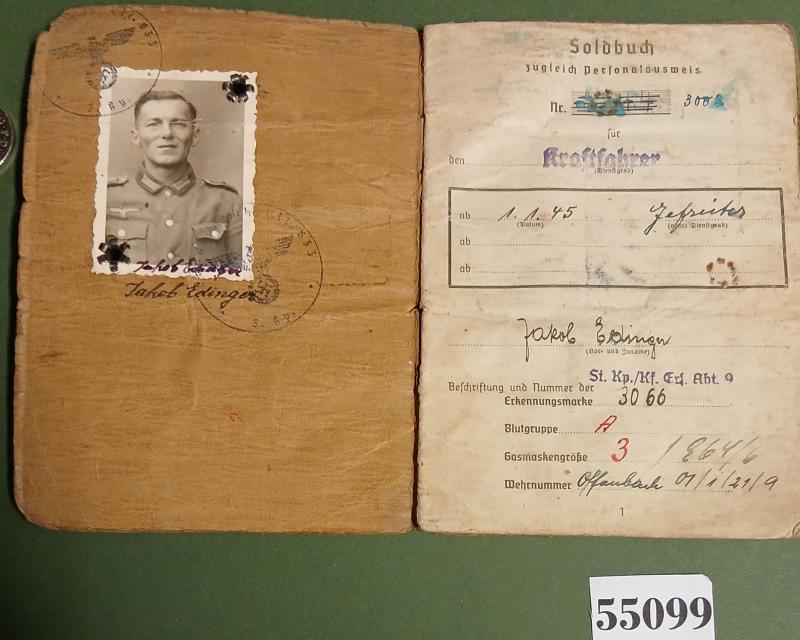 Jakob Edinger
Soldbuch
zugleich Personalausweis
Nr. 3008
für
den Kraftfahrer
(Dienstgrad)
ab 1.1.45 Gefreiter
(Datum) (neuer Dienstgrad)
ab
ab
Jakob Edinger
(Vor- und Zuname)
St. Kp./Kf. Ers. Abt. 9
Beschriftung und Nummer der
Erkennungsmarke 3066
Blutgruppe A
Gasmaskengröße 3
Wehrnummer Offenbach 01/1/21/9
1
55099